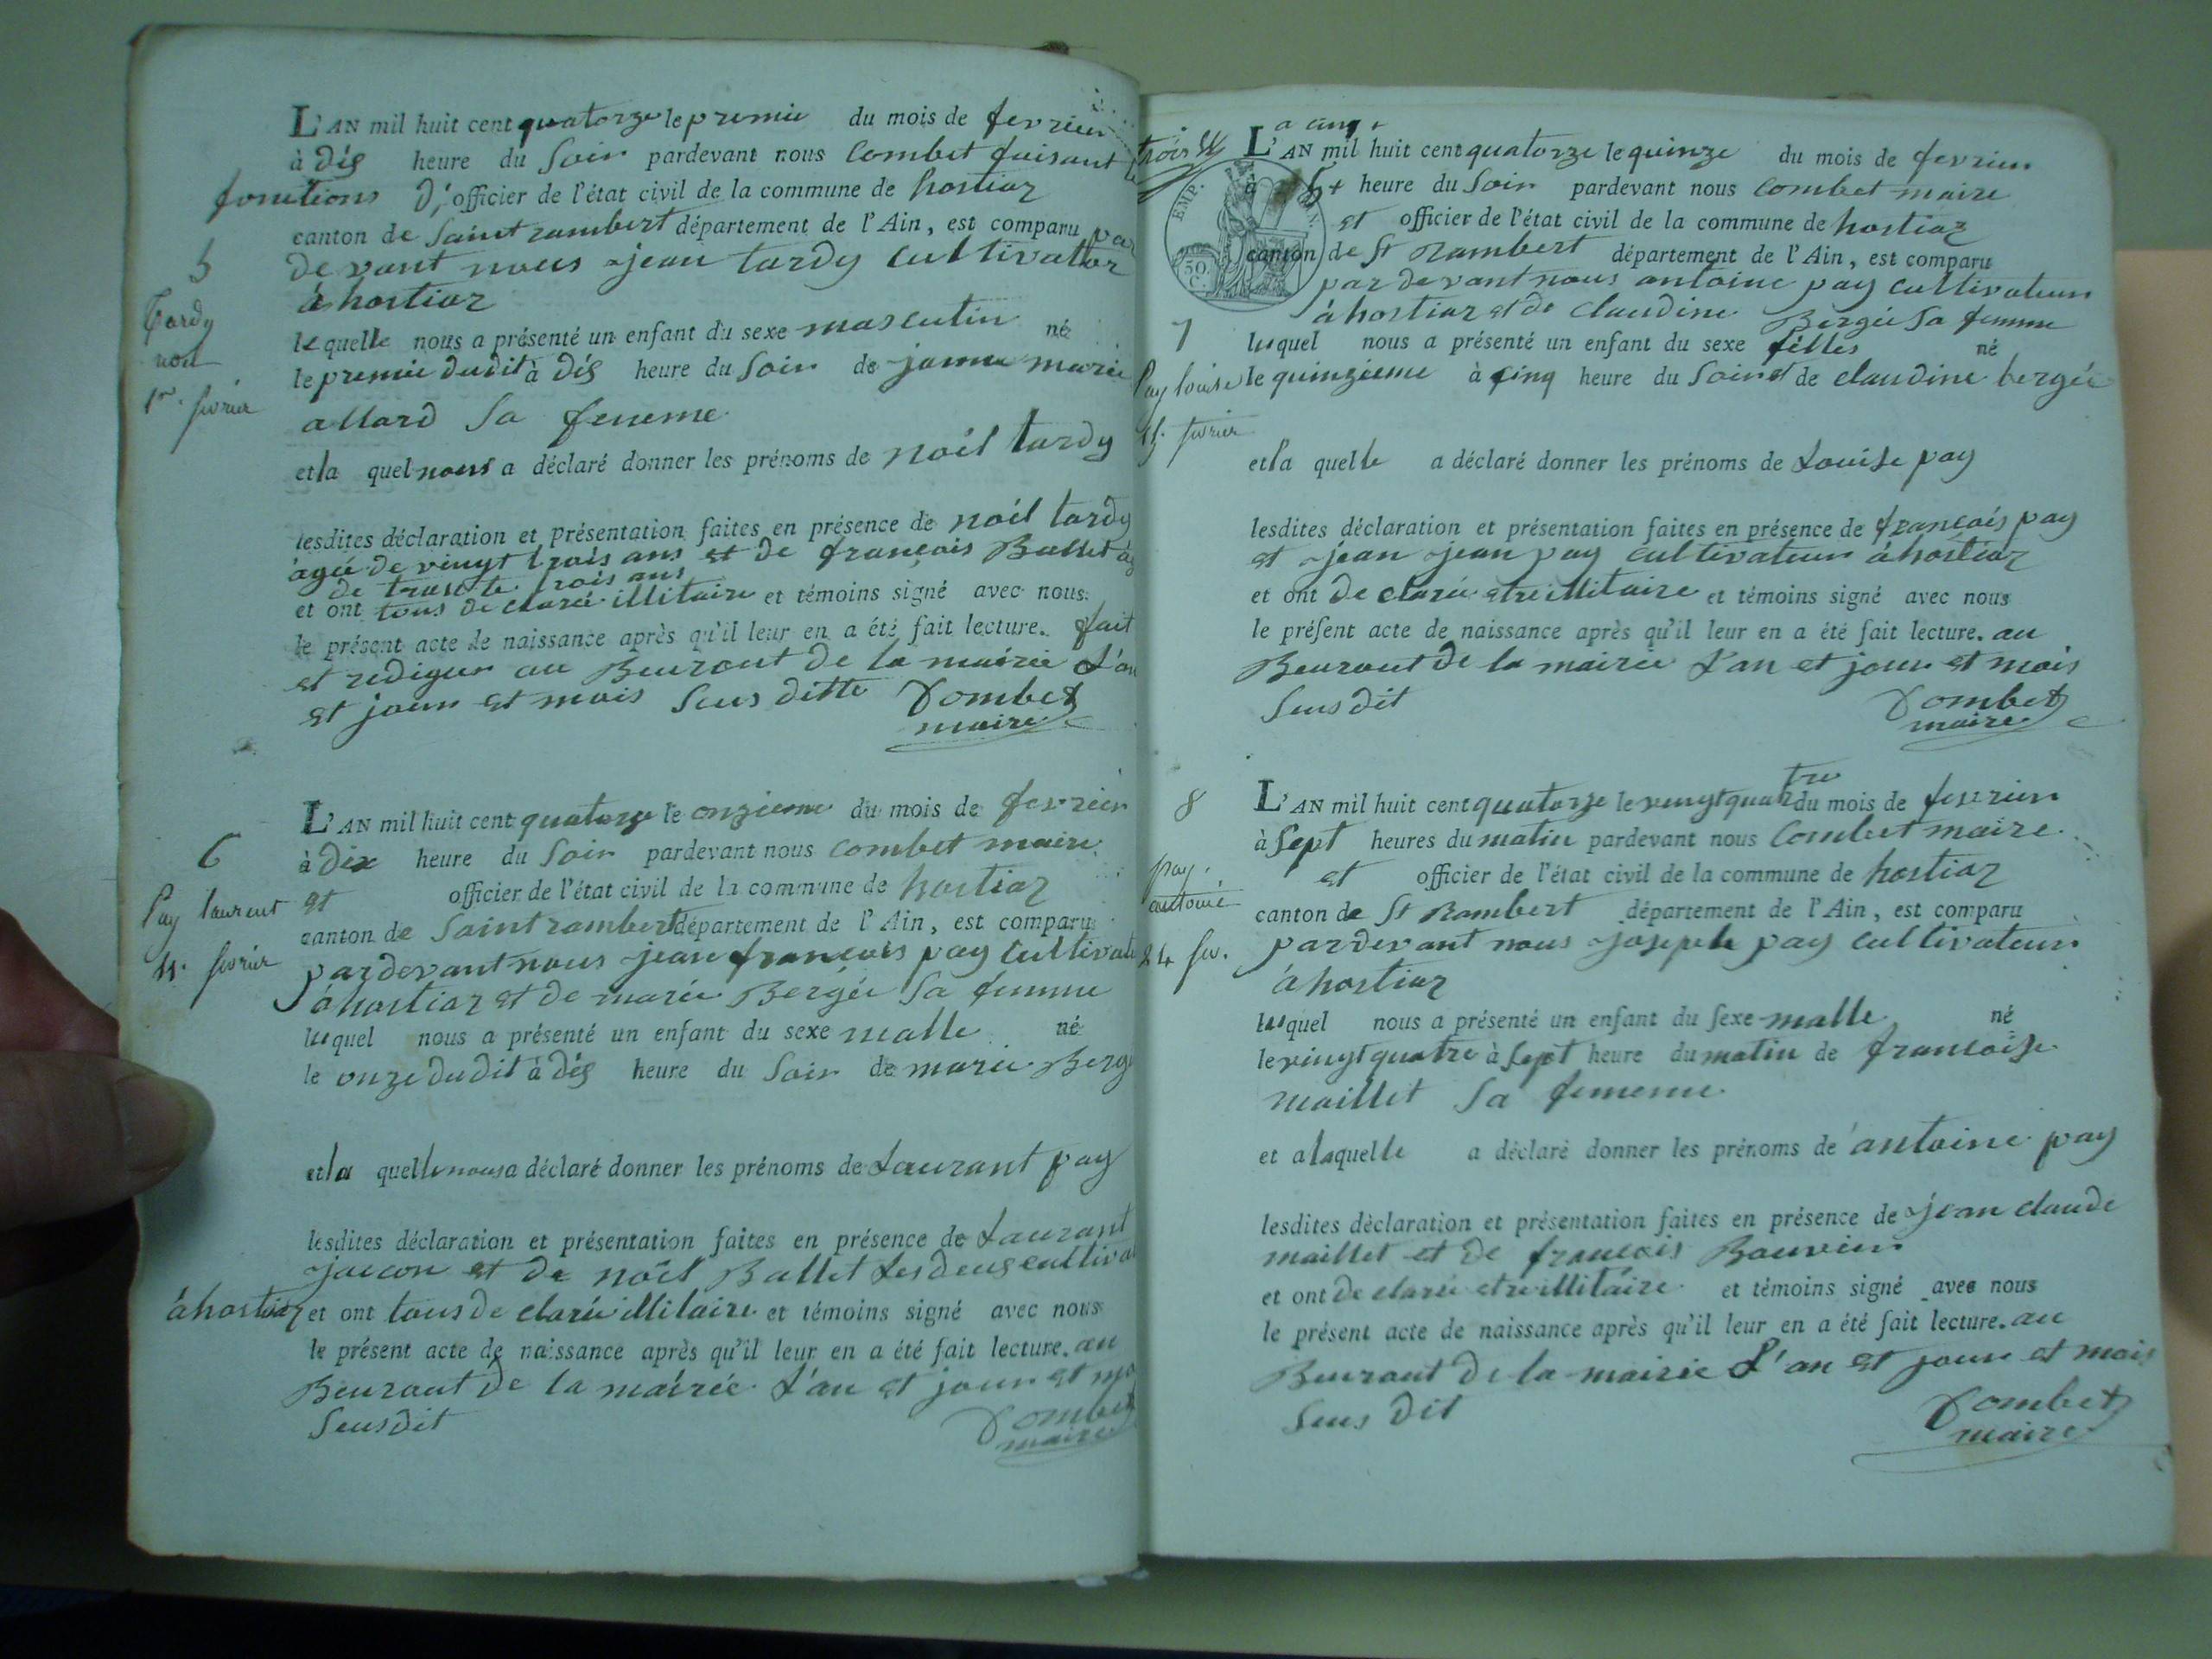 L'AN mil huit cent quatorze le premie du mois de fevrier
à dis heure du soir pardevant nous Combet faisant
fonctions d'officier de l'état civil de la commune de hostiaz
canton de Saint rambert département de l'Ain, est comparu par
devant nous jean tardy cultivator
à hostiaz
5
Tardy
noel
1er. fevrier
lequelle nous a présenté un enfant du sexe masculin né
le premie dudit à dis heure du soir de janne marie
allard sa feneme
et la quel nous a déclaré donner les prénoms de noël tardy
lesdites déclaration et présentation faites en présence de noël tardy
agée de vingt trois ans et de françois Ballet âg
de trante trois ans
et ont tous declarée illitaire et témoins signé avec nous
le présent acte de naissance après qu'il leur en a été fait lecture. fait
et rediger au Beuraut de la mairie L'an
et jour et mois Sus ditte Combet
maire
6
Pay laurent
11. fevrier
L'AN mil huit cent quatorze le onzieme du mois de fevrier
à dix heure du soir pardevant nous Combet maire
et officier de l'état civil de la commune de hostiaz
canton de Saint rambert département de l'Ain, est comparu
pardevant nous jean françois pay cultivate
à hostiaz et de marie Bergée sa femme
lequel nous a présenté un enfant du sexe malle né
le onze dudit à dis heure du soir de marie Berg
et la quelle nous a déclaré donner les prénoms de Laurant pay
lesdites déclaration et présentation faites en présence de Laurant
joucon et de noël Ballet Les deus cultiva
à hostiaz et ont tous declarée illitaire et témoins signé avec nous
le présent acte de naissance après qu'il leur en a été fait lecture. au
Beuraut de la mairée L'an et jour et mo
Susdit Combet
maire
trois
a cinq +
L'AN mil huit cent quatorze le quinze du mois de fevrier
à 5 + heure du soir pardevant nous Combet maire
EMP.
50.
C.
et officier de l'état civil de la commune de hostiaz
canton de St Rambert département de l'Ain, est comparu
par devant nous antoine pay cultivateur
à hostiaz et de claudine Bergée sa femme
7
Pay louise
15. fevrier
lequel nous a présenté un enfant du sexe filles né
le quinzieme à cinq heure du soir et de claudine bergée
et la quelle a déclaré donner les prénoms de Louise pay
lesdites déclaration et présentation faites en présence de françois pay
et jean jean pay cultivateur à hostiaz
et ont declarée etre illitaire et témoins signé avec nous
le présent acte de naissance après qu'il leur en a été fait lecture. au
Beuraut de la mairie L'an et jour et mois
Sus dit Combet
maire
8
pay.
antoine
24 fev.
L'AN mil huit cent quatorze le vingt quatre du mois de fevrier
à sept heures du matin pardevant nous Combet maire
et officier de l'état civil de la commune de hostiaz
canton de St Rambert département de l'Ain, est comparu
pardevant nous joseph pay cultivateur
à hostiaz
lequel nous a présenté un enfant du sexe malle né
le vingt quatre à sept heure du matin de francoise
maillet sa fememe
et a laquelle a déclaré donner les prénoms de antoine pay
lesdites déclaration et présentation faites en présence de jean claude
maillet et de francois Bouvier
et ont declarée etre illitaire et témoins signé avec nous
le présent acte de naissance après qu'il leur en a été fait lecture. au
Beuraut de la mairie L'an et jour et mois
Sus dit Combet
maire